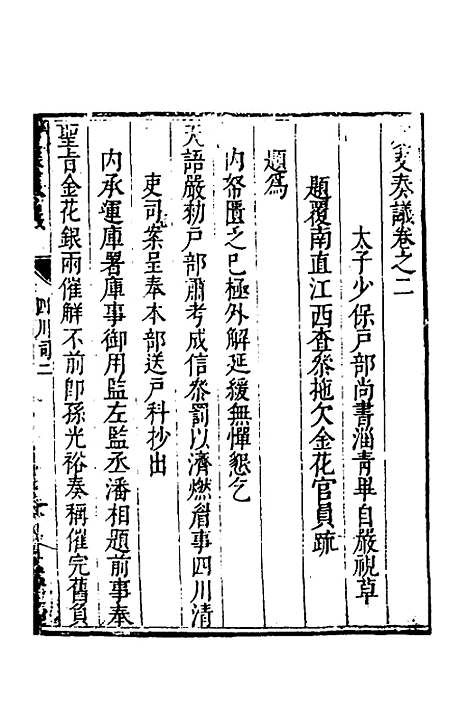 奏議卷之二
太子少保戶部尚書淄青畢自嚴視草
題覆南直江西查叅拖欠金花官員疏
題為
內帑匱乏已極外解延緩無憚懇乞
天語嚴勅戶部肅考成信叅罰以濟燃眉事四川清
吏司案呈奉本部送戶科抄出
內承運庫署庫事御用監左監丞潘相題前事奉
聖旨金花銀兩催解不前卽孫光裕奏稱催完舊負
四川司二